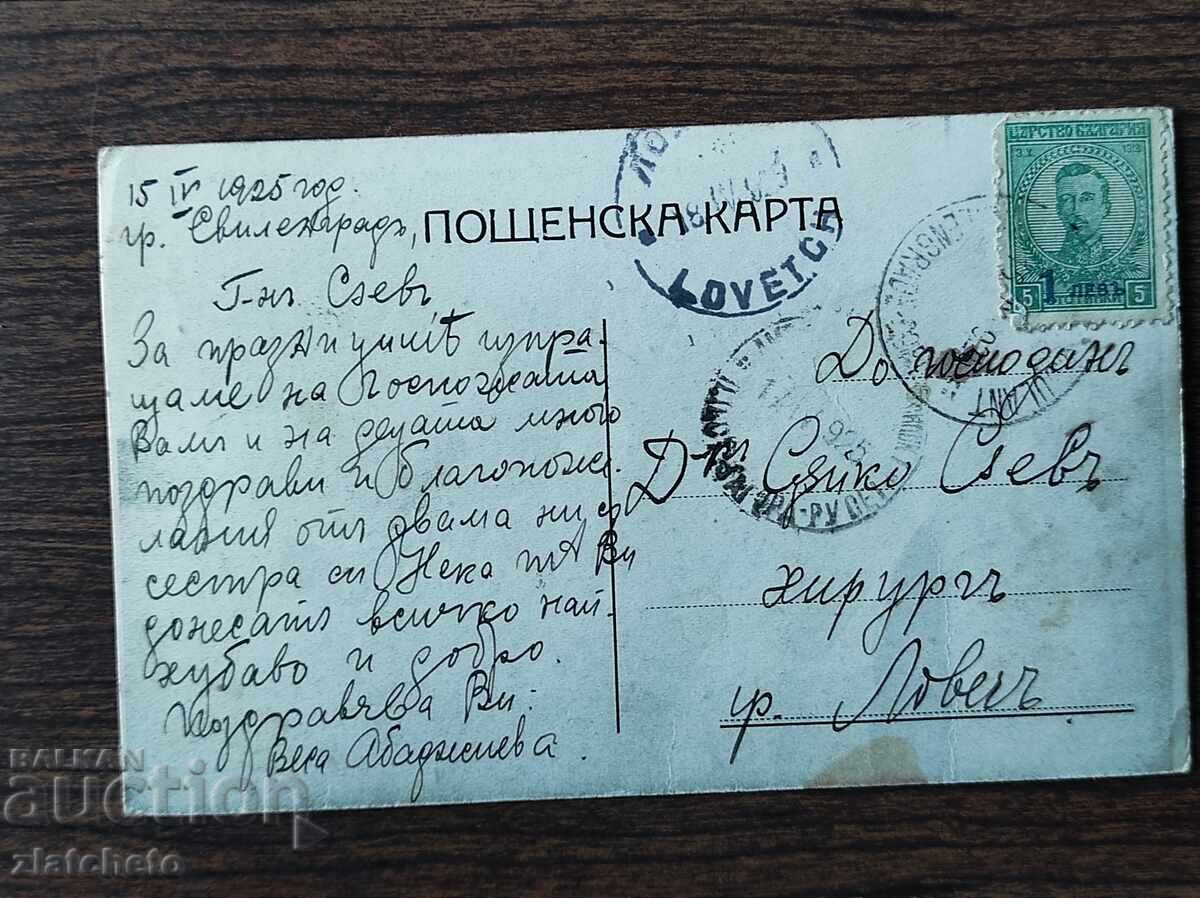 15 IV 1925 год.
гр. Свиленградъ,
ПОЩЕНСКА КАРТА
Г-нъ Съевъ
За празницитѣ изпра-
щаме на Госпожата
Вамъ и на децата много
поздрави и благопоже-
лания отъ двама ни съ
сестра си Нека тѣ Ви
донесатъ всичко най-
хубаво и добро.
Поздравява Ви:
Веса Абаджиева
ЦАРСТВО БЪЛГАРИЯ
5 1 ЛЕВЪ 5
LOVETCH
1925
До господинъ
Д-ръ Сѣйко Съевъ
хирургъ
гр. Ловечъ
BALKAN
auction
zlatcheto